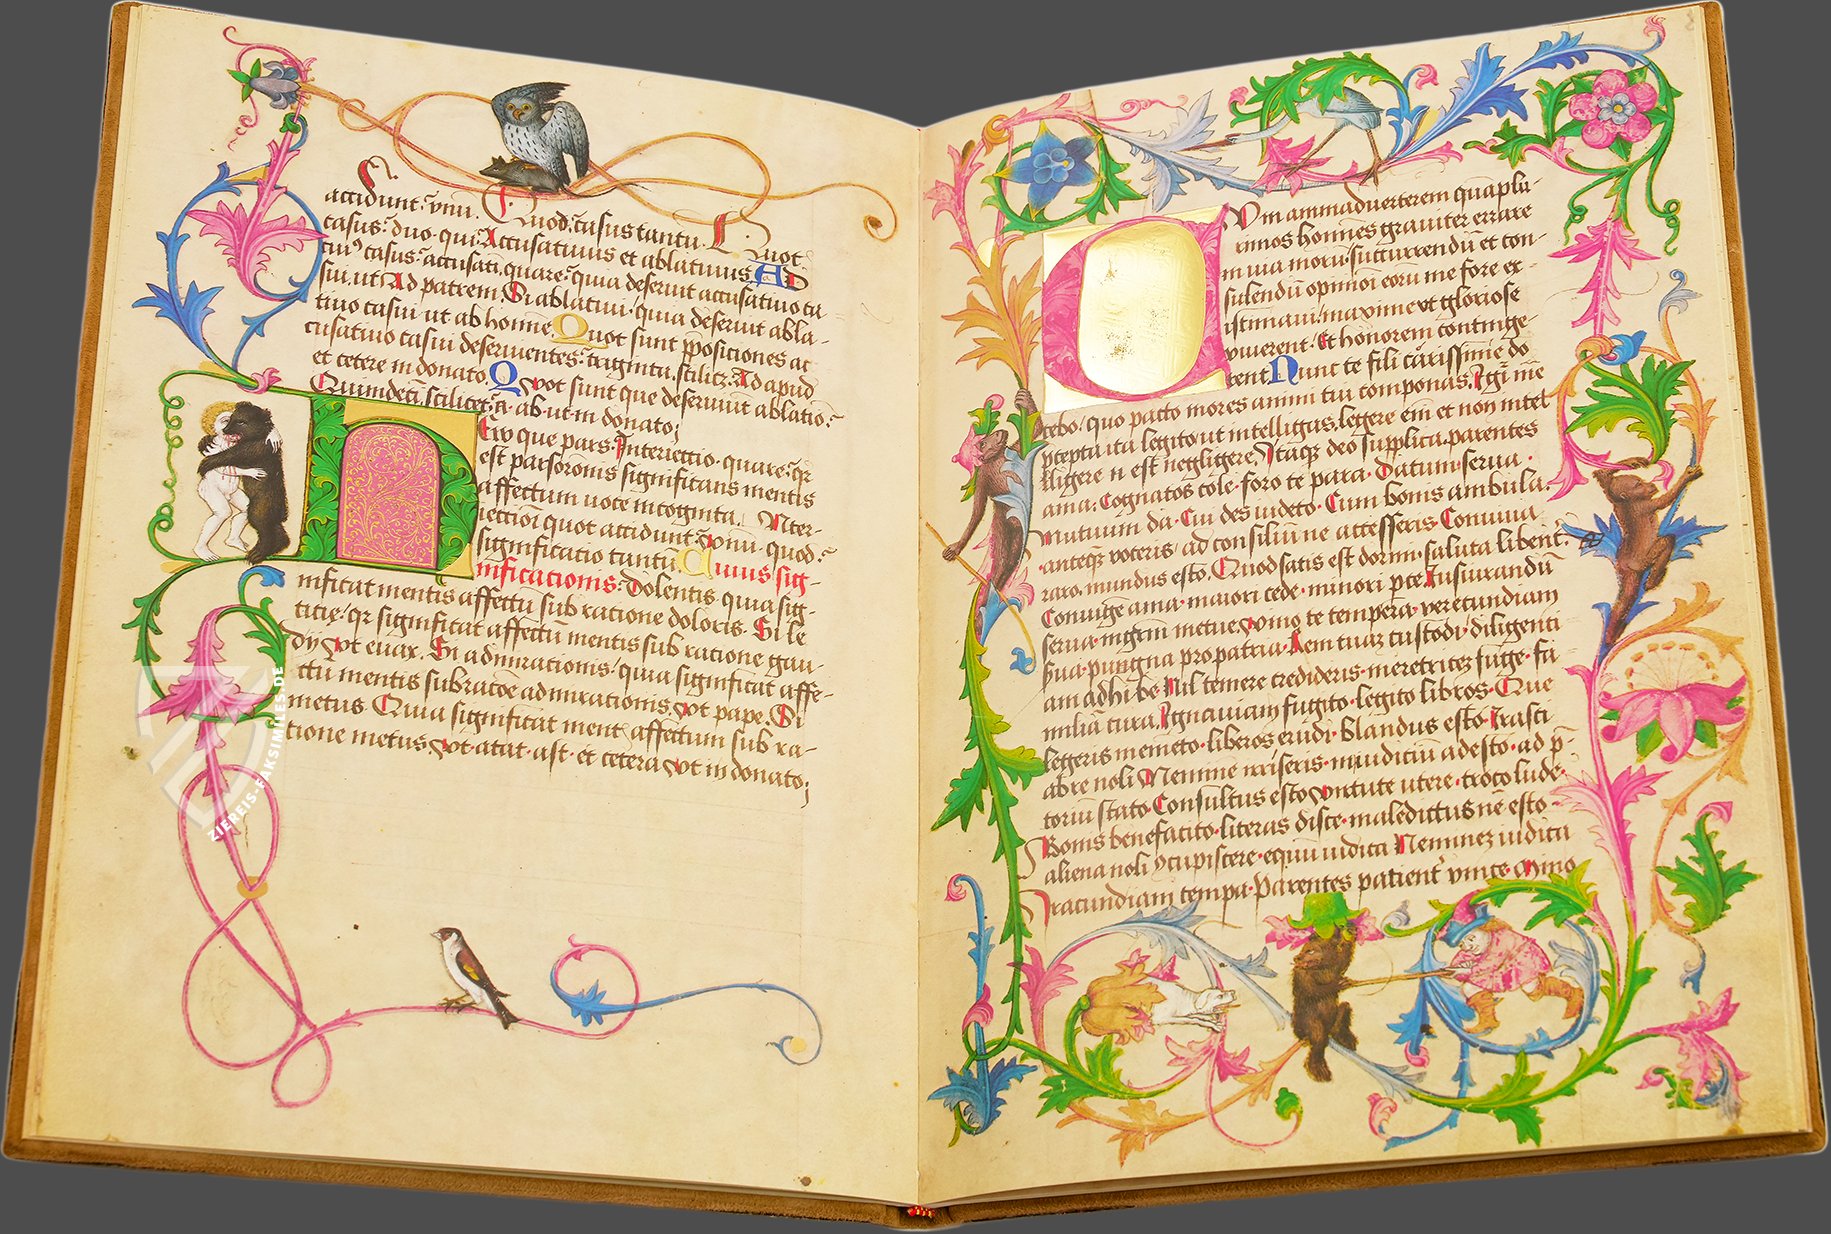 accidunt. vnu. Quod. casus tantu. Quot
casus. duo. qui. Accusatiuus et ablatiuus AD
casus. accusati. quare. quia deseruit accusatiuo ca
sui. ut Ad patrem. Si ablatiui. quia deseruit abla-
tiuo casui ut ab homine. Quot sunt pposiciones ac
cusatiuo casui deseruientes. triginta. scilicz. Ad apud
et cetere in donato. Quot sunt que deseruiut ablatio
Quindeci. scilicet. a. ab. ut in donato;
que pars. Interiectio. quare. qr
est pars oronis significans mentis
affectum uoce incognita. Inter-
iectioi quot accidunt. vnu. quod.
significatio tantu Cuius sig-
nificationis. Dolentis quia sig-
nificat mentis affectu sub ratione doloris. Si le
ticie. qr significat affectu mentis sub ratione gau-
dij vt euax. Si admirationis. quia significat affe-
ctu mentis sub racoe admirationis vt pape. Si
metus. Quia significat ment affectum sub ra-
tione metus vt atat. ast. et cetera vt in donato;
Vm animaduerterem quaplu-
rimos homies grauiter errare
in uia moru. succurrendu et con-
sulendu opinioi eoru me fore ex-
istimaui. maxime vt gloriose
viuerent. Et honorem continge-
rent Nunc te fili carissime do
cebo. quo pacto mores animi tui componas. Igi me
pcepta ita legito ut intelligas. legere eni et non intel
lligere n est negligere. Itaqz deo supplica. parentes
ama. Cognatos cole. foro te para. Datum serua.
Mutuum da. Cui des uideto. Cum bonis ambula.
anteqz voceris. ad consiliu ne accesseris. Conuiua
raro. mundus esto. Quod satis est dormi. saluta libent.
Coniuge ama. maiori cede. minori pce Iusiurandu
serua. migrm metue. vino te tempera. verecundiam
sua. pungna pro patria. Rem tuaz custodi. diligenti
am adhibe Nil temere credideris. meretricez fuge. fa
milia cura. Ignauiam fugito. legito libros. Que
legeris memeto. liberos erudi. Blandus esto. Irasci
abre noli Nemine irriseris. in iudiciu adesto. ad p-
toriu stato Consultus esto virtute utere. troco lude.
Bonis benefacito. literas disce. maledictus ne esto.
aliena noli ycupiscere. equu iudica Neminez iudica
Iracundiam tempa. Parentes patient vince. Mino
ZIEREIS-FAKSIMILES.DE